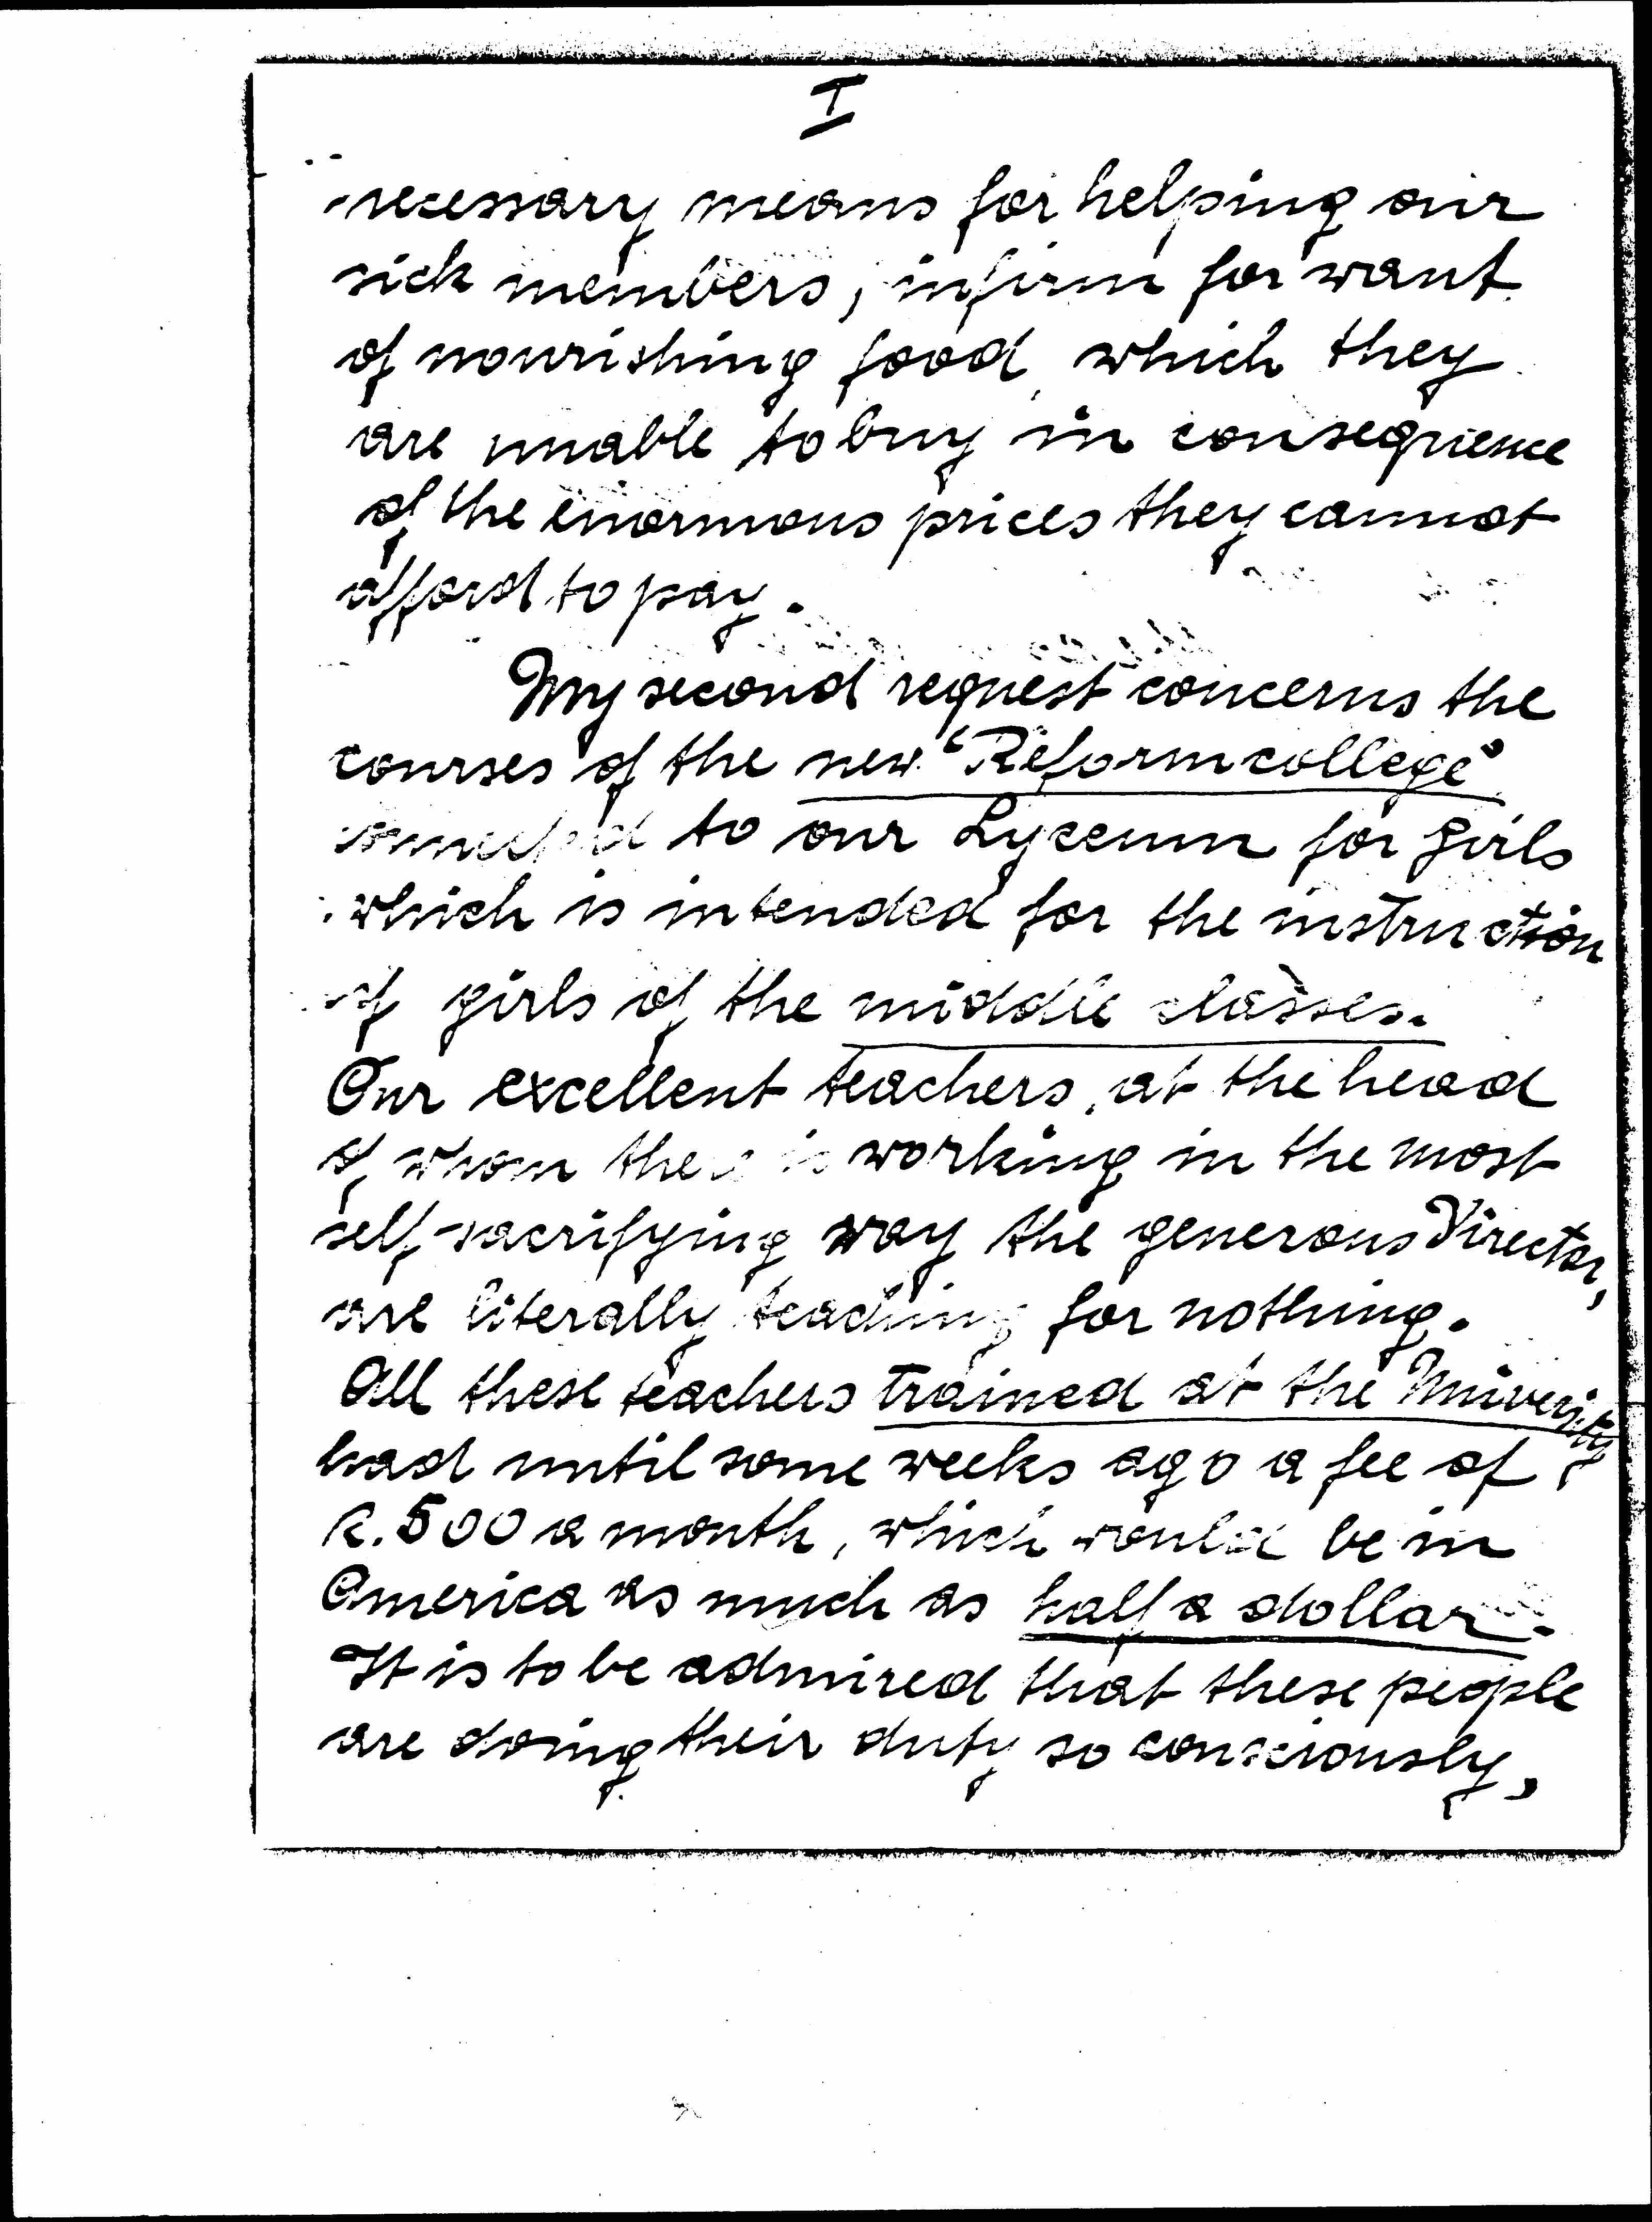 I
necessary means for helping our
sick members, infirm for want
of nourishing food which they
are unable to buy in consequence
of the enormous prices they cannot
afford to pay.
My second request concerns the
courses of the new "Reformcollege"
to our Lyceum for girls
which is intended for the instruction
of girls of the middle classes.
Our excellent teachers, at the head
of whom there is working in the most
self-sacrifying way the generous Director,
are literally teaching for nothing.
All these teachers trained at the University
had until some weeks ago a fee of
K. 500 a month, which would be in
America as much as half a dollar.
It is to be admired that these people
are doing their duty so consciously,